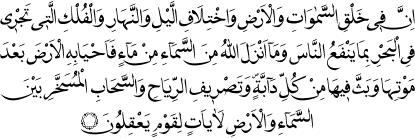 اِنَّ فِى خَلْقِ السَّمٰوَاتِ وَالْاَرْضِ وَاخْتِلَافِ الَّيْلِ وَالنَّهَارِ وَالْفُلْكِ الَّتِى تَجْرِى
فِى الْبَحْرِ بِمَا يَنْفَعُ النَّاسَ وَمَٓا اَنْزَلَ اللّٰهُ مِنَ السَّمَٓاءِ مِنْ مَٓاءٍ فَاَحْيَا بِهِ الْاَرْضَ بَعْدَ
مَوْتِهَا وَبَثَّ فِيهَا مِنْ كُلِّ دَٓابَّةٍ وَتَصْرِيفِ الرِّيَاحِ وَالسَّحَابِ الْمُسَخَّرِ بَيْنَ
السَّمَٓاءِ وَالْاَرْضِ لَاٰيَاتٍ لِقَوْمٍ يَعْقِلُونَ